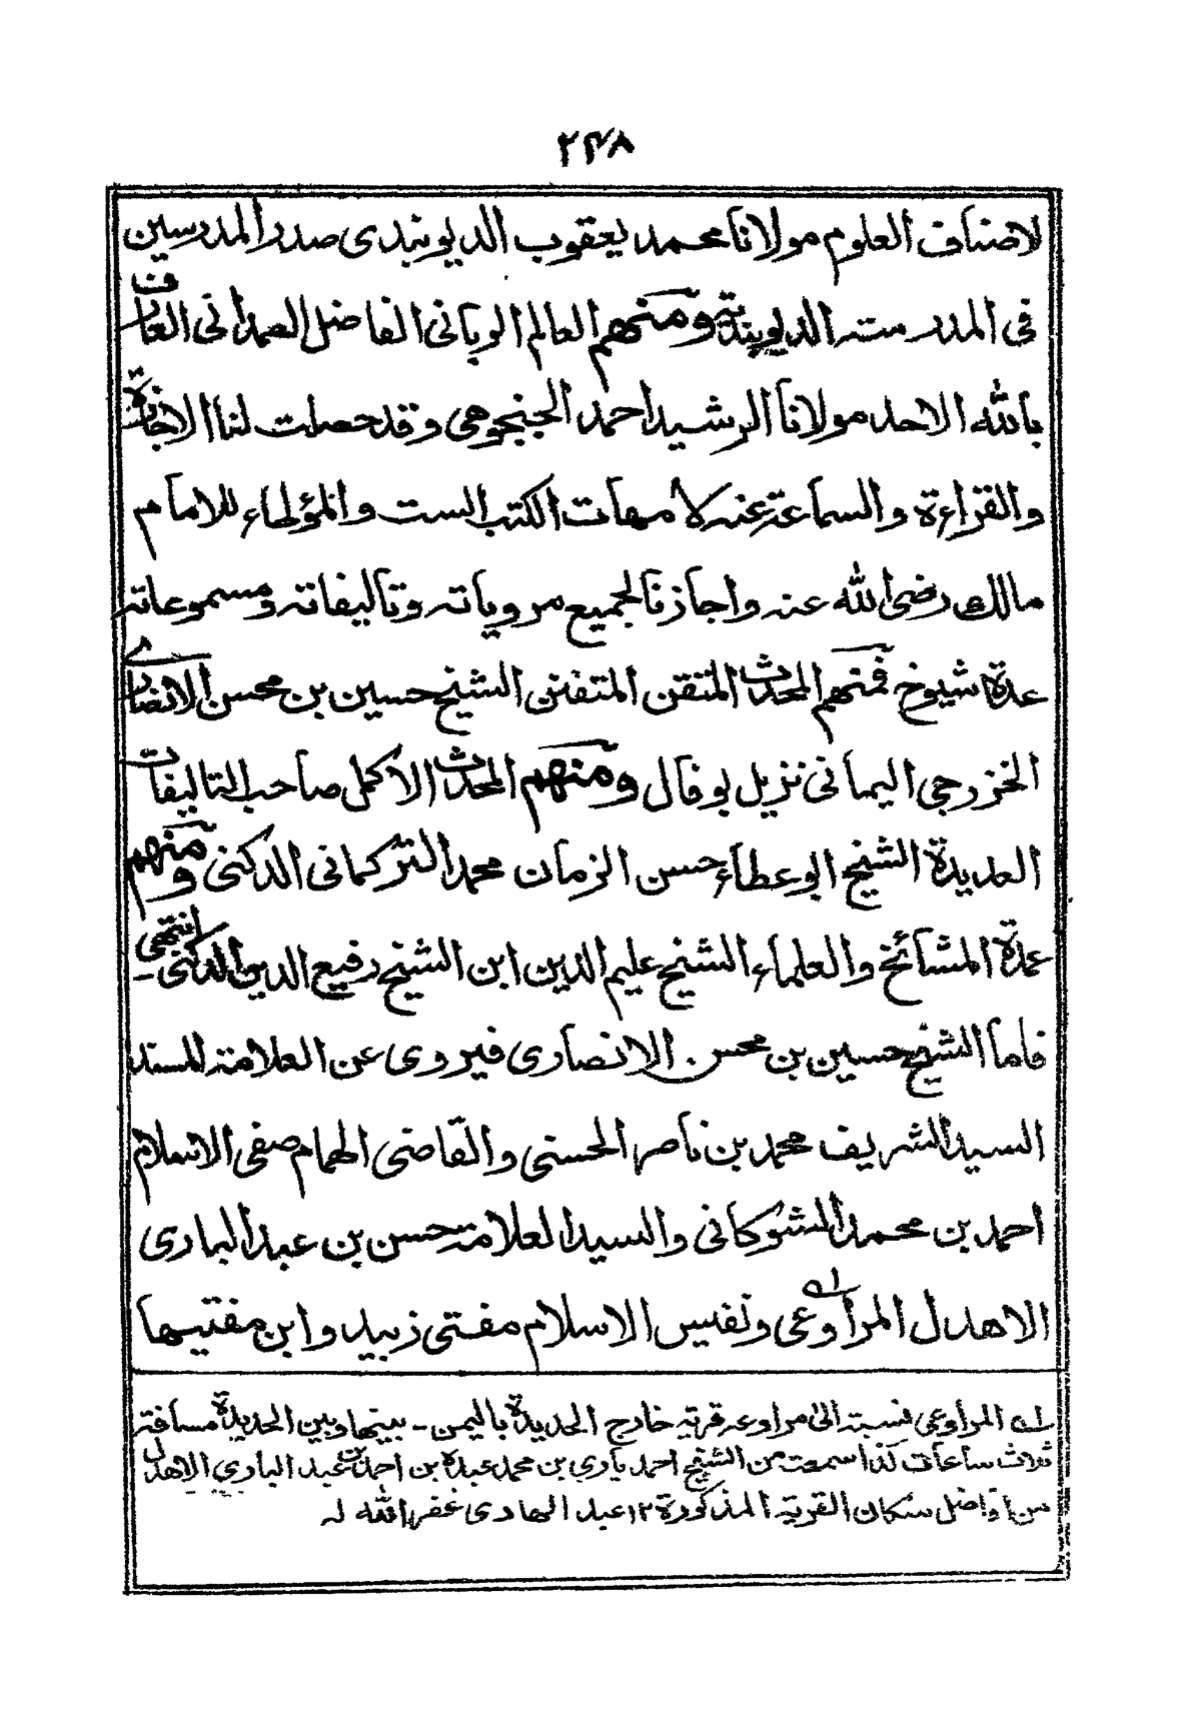 ٢٣٨
لاصناف العلوم مولانا محمد يعقوب الديوبندى صدر المدرسين
فى المدرسته الديوبندية ومنهم العالم الربانى الفاضل الصمدانى العارف
بالله الاحد مولانا الرشيد احمد الجنجوهى وقد حصلت لنا الاجازة
والقراءة والسماعة عنه لأمهات الكتب الست والمؤطاء للامام
مالك رضى الله عنه واجازنا لجميع مروياته وتاليفاته ومسموعاته
عدة شيوخ فمنهم المحدث المتقن المتفنن الشيخ حسين بن محسن الانصارى
الخزرجى اليمانى نزيل بوفال ومنهم المحدث الأكمل صاحب التاليفات
العديدة الشيخ ابو عطاء حسن الزمان محمد التركمانى الدكنى ومنهم
عمدة المشائخ والعلماء الشيخ عليم الدين ابن الشيخ رفيع الدين الدكنى انتهى-
فاما الشيخ حسين بن محسن الانصارى فيروى عن العلامة المسند
السيد الشريف محمد بن ناصر الحسنى والقاضى الهمام صفى الاسلام
احمد بن محمد الشوكانى والسيد العلامة حسن بن عبد البارى
الاهدل المراوعى له ونفيس الاسلام مفتى زبيد وابن مفتيها
له المراوعى نسبة الى مراوعه قرية خارج الحديدة باليمن - بينها وبين الحديدة مسافة
ثلاث ساعات كذا سمعت من الشيخ احمد بارى بن محمد عبده بن احمد بن عبد البارى الاهدل
من افاضل سكان القرية المذكورة ١٢ عبد الهادى غفر الله له